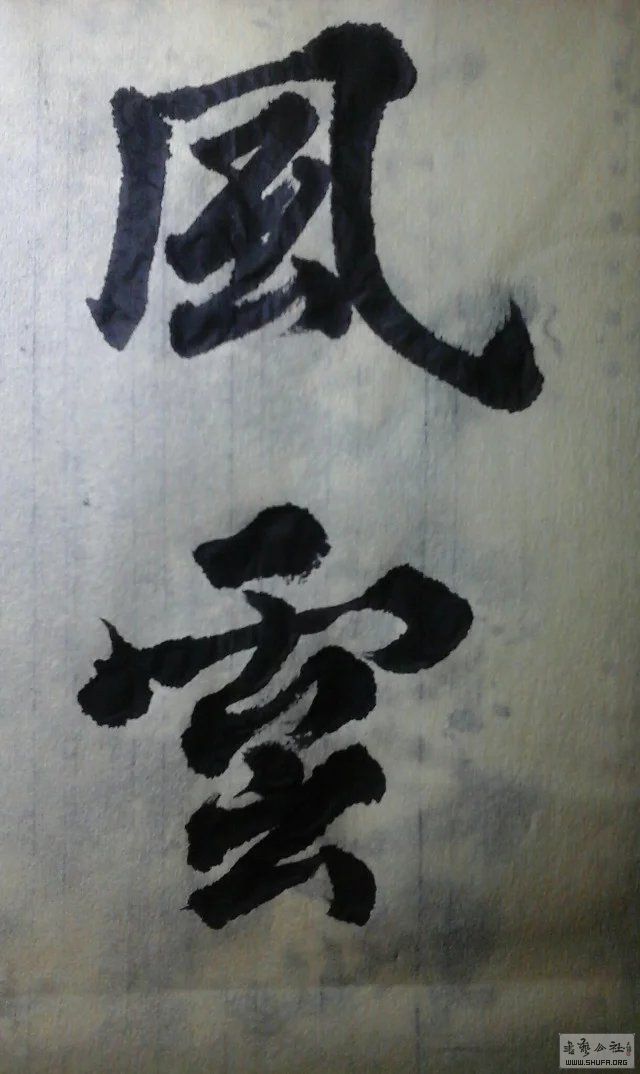 風雲
书艺公社
WWW.SHUFA.ORG